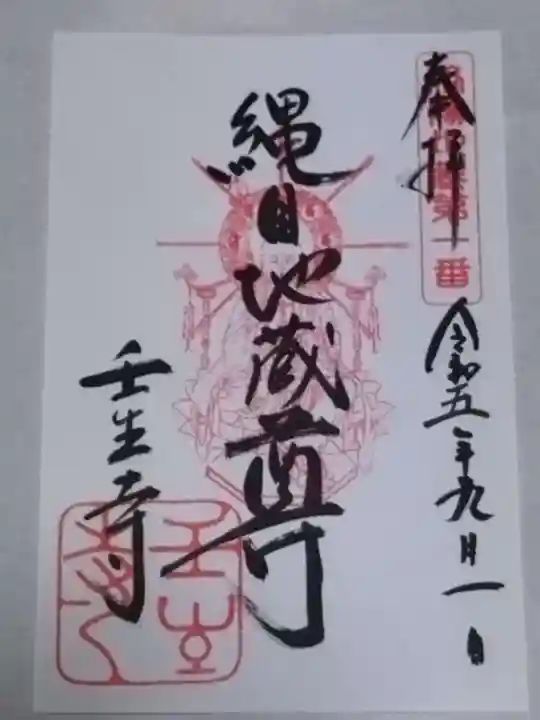 奉拝
第一番
令和五年九月一日
縄目地蔵尊
壬生寺